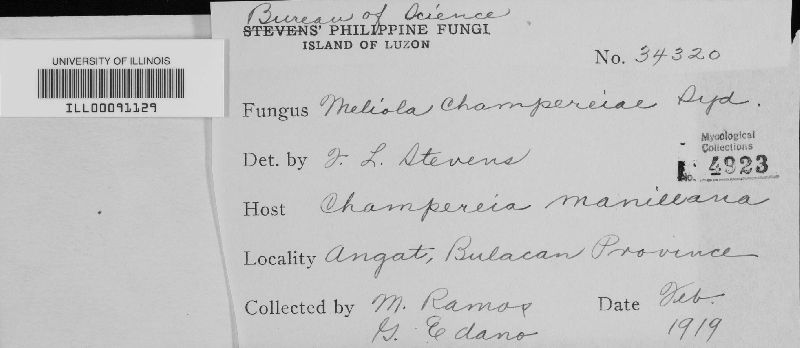 Bureau of Science
STEVENS' PHILIPPINE FUNGI
ISLAND OF LUZON
No. 34320
UNIVERSITY OF ILLINOIS
ILL00091129
Fungus Meliola Champereiae Syd.
Mycological
Collections
No. 4923
Det. by F. L. Stevens
Host Champereia manillana
Locality Angat, Bulacan Province
Collected by M. Ramos
G. Edano
Date Feb.
1919